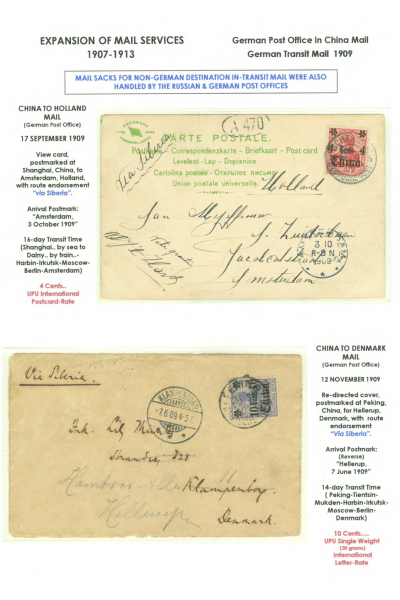 EXPANSION OF MAIL SERVICES
1907-1913
German Post Office in China Mail
German Transit Mail 1909
MAIL SACKS FOR NON-GERMAN DESTINATION IN-TRANSIT MAIL WERE ALSO
HANDLED BY THE RUSSIAN & GERMAN POST OFFICES
CHINA TO HOLLAND
MAIL
(German Post Office)
17 SEPTEMBER 1909
View card,
postmarked at
Shanghai, China, to
Amsterdam, Holland,
with route endorsement
"via Siberia".
Arrival Postmark:
"Amsterdam,
3 October 1909"
16-day Transit Time
(Shanghai.. by sea to
Dalny.. by train..-
Harbin-Irkutsk-Moscow-
Berlin-Amsterdam)
4 Cents..
UPU International
Postcard-Rate
470
CARTE POSTALE.
Correspondenzkarte - Briefkaart - Post card
Levelező-Lap - Dopisnice
Cartolina postale - Открытое письмо
Union postale universelle.
via Siberia
Holland
4 Cent 4
China
3 10
8-8 N
1909
Amsterdam
CHINA TO DENMARK
MAIL
(German Post Office)
12 NOVEMBER 1909
Re-directed cover,
postmarked at Peking,
China, for Hellerup,
Denmark, with route
endorsement
"Via Siberia".
Arrival Postmark:
(Reverse)
"Hellerup,
7 June 1909"
14-day Transit Time
( Peking-Tientsin-
Mukden-Harbin-Irkutsk-
Moscow-Berlin-
Denmark)
10 Cents.....
UPU Single Weight
(20 grams)
International
Letter-Rate
Via Siberia.
KLAMPENBORG
-7.6.09.4-5
Frk. Lily
Klampenborg
Hellerup
Denmark.